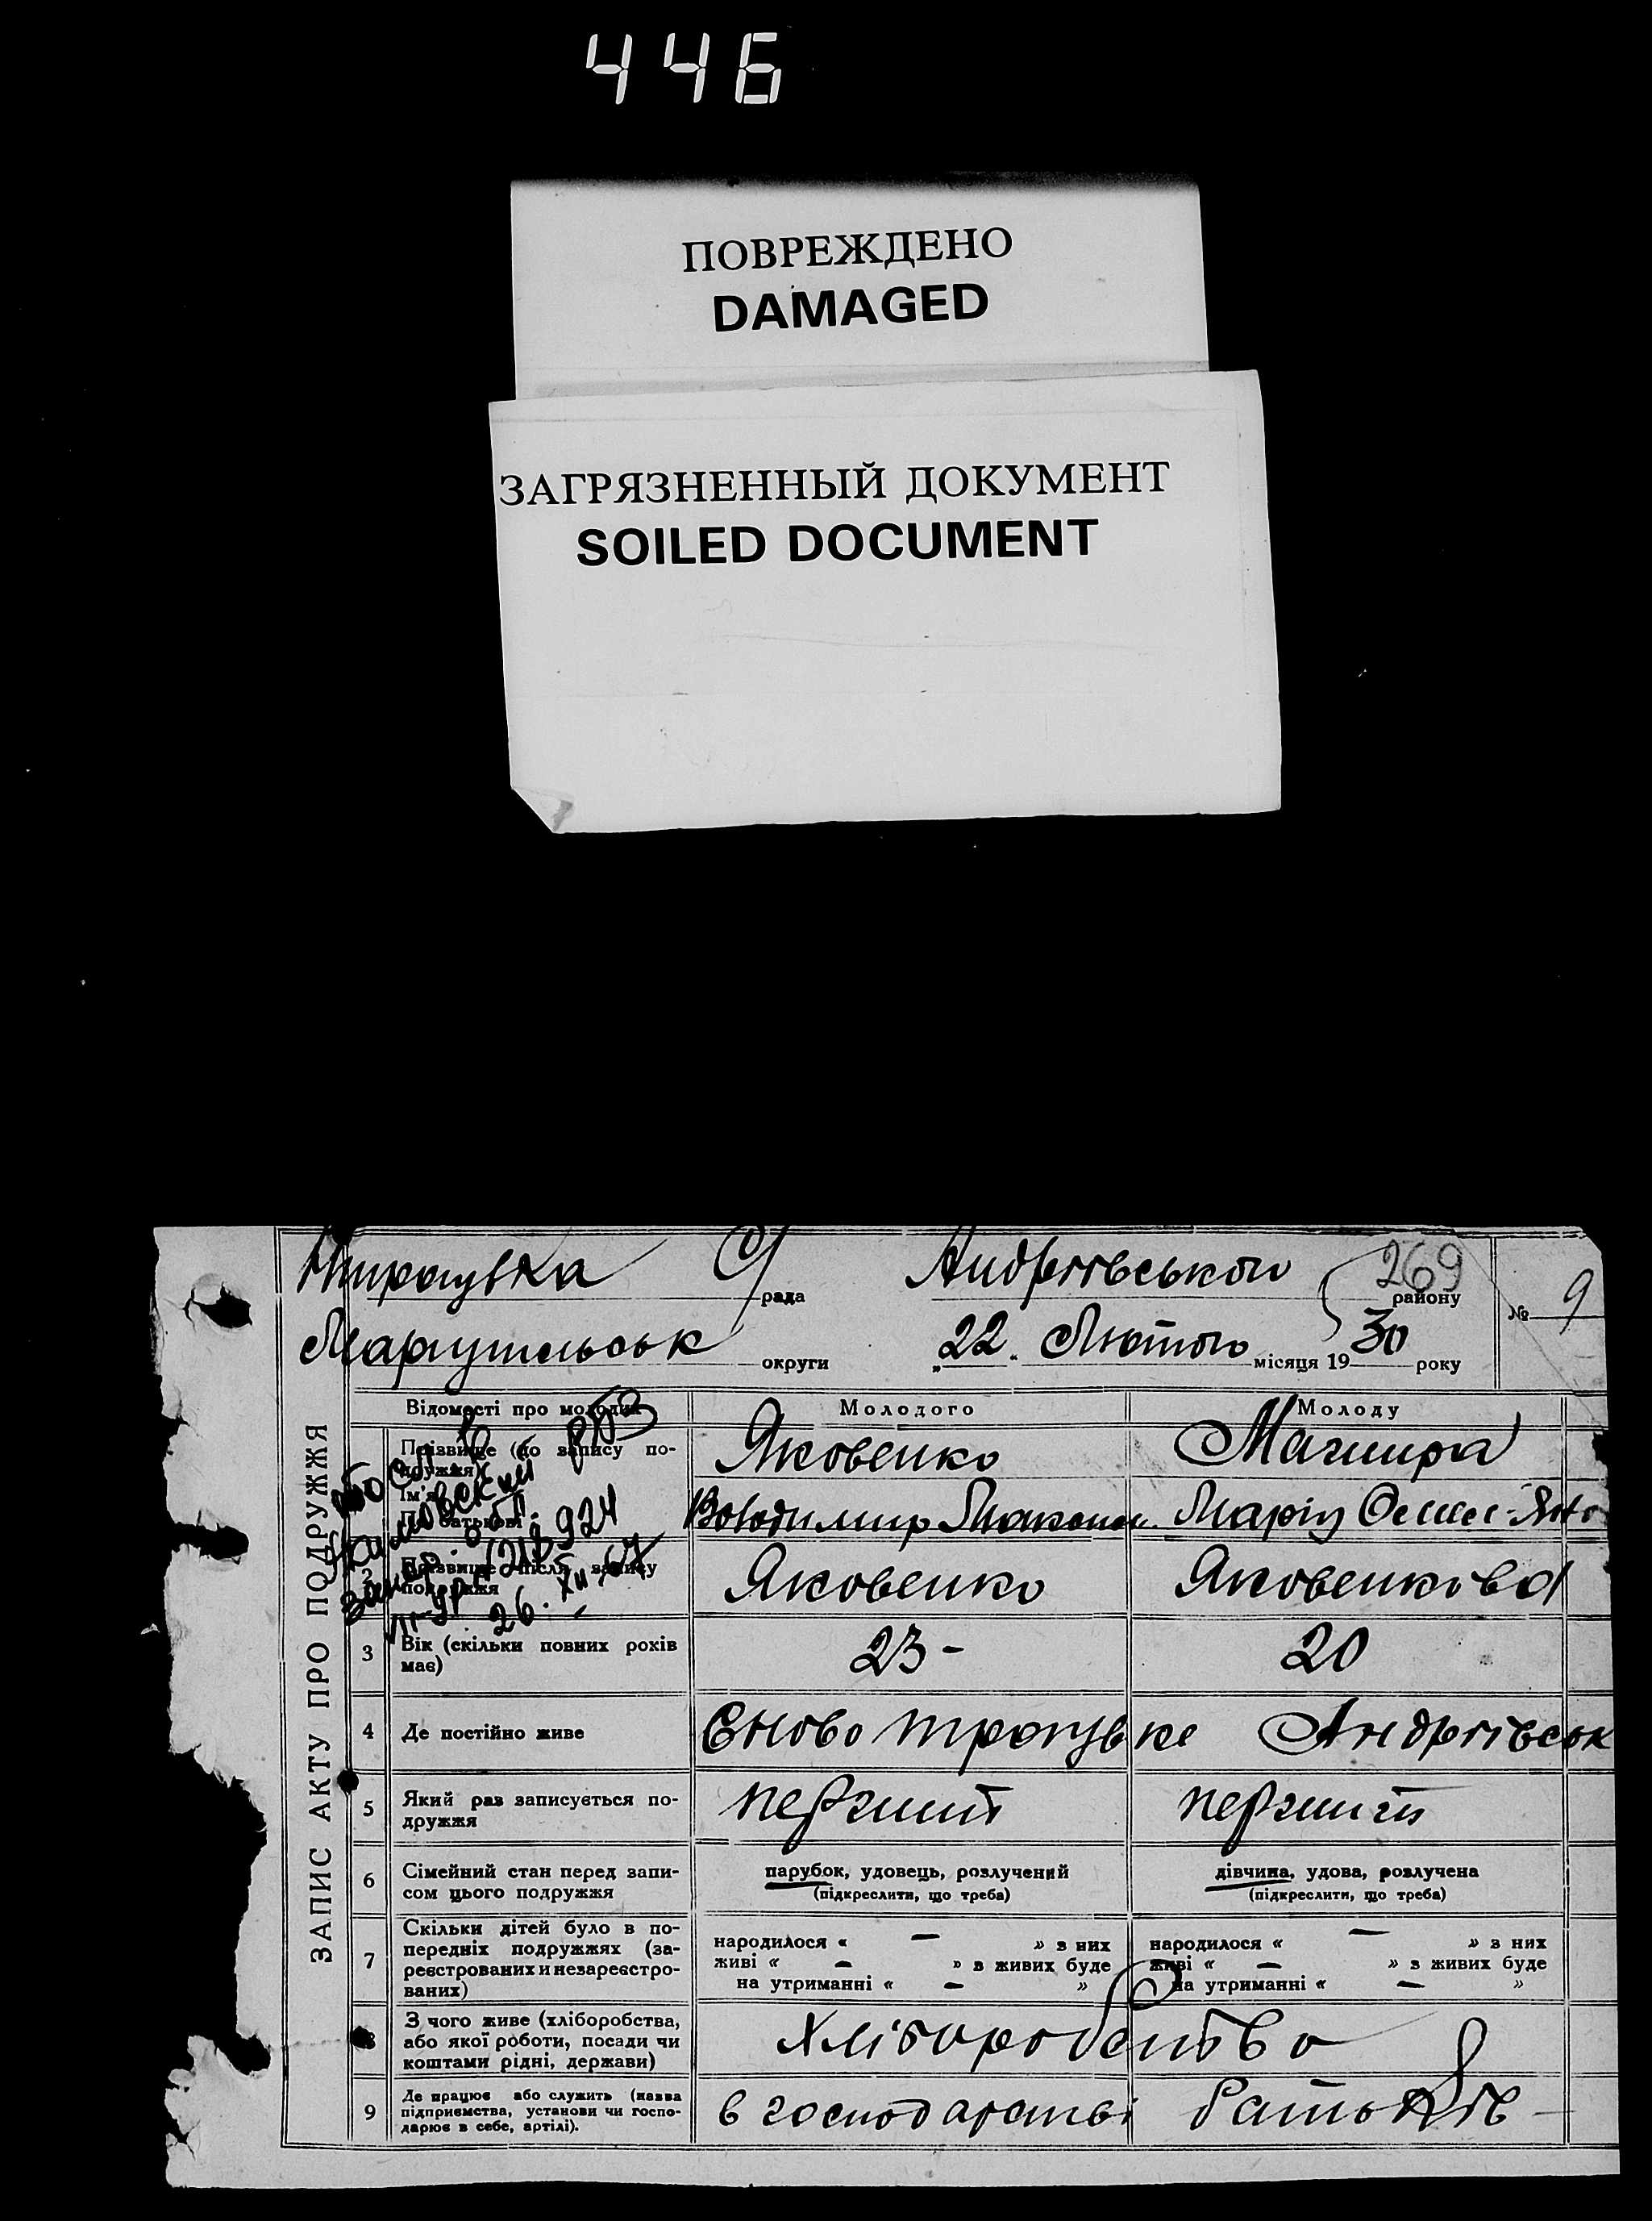 446
ПОВРЕЖДЕНО
DAMAGED
ЗАГРЯЗНЕННЫЙ ДОКУМЕНТ
SOILED DOCUMENT
С/ рада Андріївського району 269 № 9
округи „22“ Лютого місяця 1930 року
ЗАПИС АКТУ ПРО ПОДРУЖЖЯ
Відомості про молодих
Молодого
Молоду
Прізвище (до запису подружжя)
Яковенко
Ім'я
По батькові
Марія
2 Прізвище після запису подружжя
Яковенко
Яковенкова
924
26. XII. 67
3 Вік (скільки повних років має)
23 -
20
4 Де постійно живе
5 Який раз записується подружжя
6 Сімейний стан перед записом цього подружжя
парубок, удовець, розлучений
(підкреслити, що треба)
дівчина, удова, розлучена
(підкреслити, що треба)
7 Скільки дітей було в попередніх подружжях (зареєстрованих и незареєстрованих)
народилося « — » з них
живі « — » з живих буде
на утриманні « — »
народилося « — » з них
живі « — » з живих буде
на утриманні « — »
8 З чого живе (хліборобства, або якої роботи, посади чи коштами рідні, держави)
хліборобство
9 Де працює або служить (назва підприємства, установи чи господарює в себе, артілі).
в господарстві батьків —